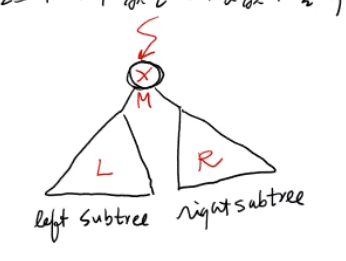 X
M
L R
left subtree right subtree